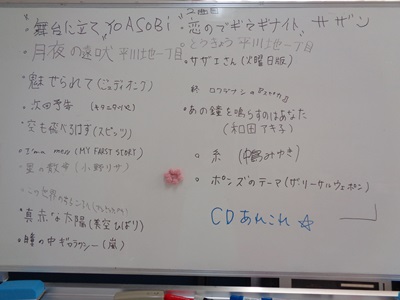 ・舞台に立て YOASOBI
・月夜の遠吠 平川地一丁目
・魅せられて(ジュディオング)
・次回予告
・空も飛べるはず(スピッツ)
(MY FIRST STORY)
・星の数 (小野リサ)
・真赤な太陽(美空ひばり)
・瞳の中ギャラクシー(嵐)
2曲目
・恋のブギウギナイト、サザン
・とうきょう 平川地一丁目
・サザエさん(火曜日版)
・あの鐘を鳴らすのはあなた
(和田アキ子)
・糸 (中島みゆき)
・のテーマ(ザ・リーサルウェポンズ)
CDあれこれ☆